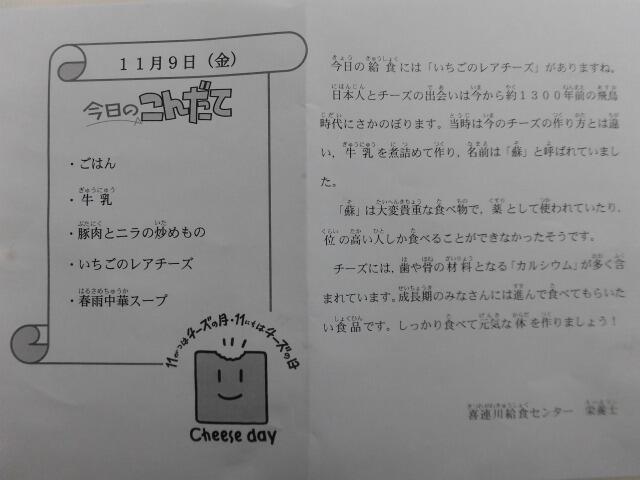 11月9日（金）
今日のこんだて
・ごはん
・牛乳
・豚肉とニラの炒めもの
・いちごのレアチーズ
・春雨中華スープ
11がつはチーズの月・11にちはチーズの日
Cheese day
今日の給食には「いちごのレアチーズ」がありますね。
日本人とチーズの出会いは今から約1300年前の飛鳥
時代にさかのぼります。当時は今のチーズの作り方とは違
い，牛乳を煮詰めて作り，名前は「蘇」と呼ばれていまし
た。
「蘇」は大変貴重な食べ物で，薬として使われていたり，
位の高い人しか食べることができなかったそうです。
チーズには，歯や骨の材料となる「カルシウム」が多く含
まれています。成長期のみなさんには進んで食べてもらいた
い食品です。しっかり食べて元気な体を作りましょう！
喜連川給食センター　栄養士